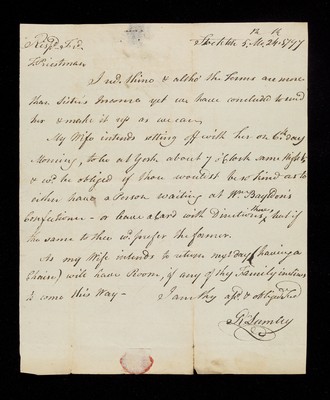 12 12
Stockton 5 Mo. 24. 1797
Resp.d Frd.
T Priestman
I rd. thine & altho' the Terms are more
than Sisters Income yet we have concluded to send
her & make it up as we can.
My Wife intends setting off with her on 6th day
Morning, to be at York about 7 o'Clock same Night
& wd. be obliged if thou wouldst be so kind as to
either have a Person waiting at Wm.
Confectioner — or leave a Card with Directions, but if
the same to thee wd. prefer the former.
As my Wife intends to return next day (having a
Chaise) will have Room, if any of thy Family inclines
to come this Way — I am thy aff. & obliged Frd
Rd. Lumley